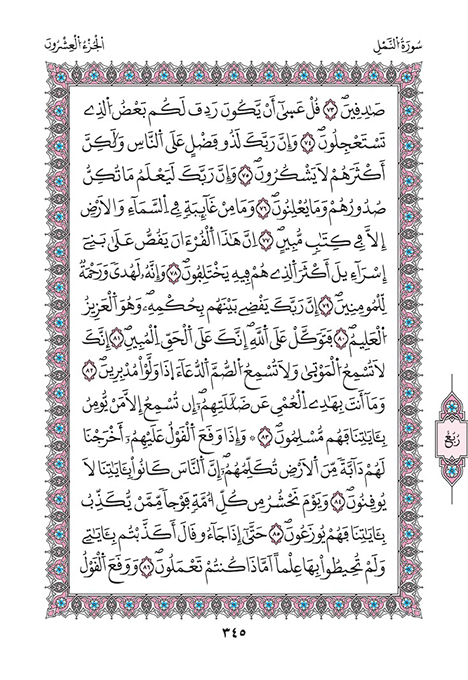 سُورَةُ النَّمْلِ
الْجُزْءُ الْعِشْرُونَ
صَٰدِقِينَۖ ٧٣ قُلْ عَسَىٰٓ أَنْ يَّكُونَ رَدِفَ لَكُم بَعْضُ الَّذِے
تَسْتَعْجِلُونَۖ ٧٤ وَإِنَّ رَبَّكَ لَذُو فَضْلٍ عَلَى النَّاسِ وَلَٰكِنَّ
أَكْثَرَهُمْ لَا يَشْكُرُونَۖ ٧٥ وَإِنَّ رَبَّكَ لَيَعْلَمُ مَا تُكِنُّ
صُدُورُهُمْ وَمَا يُعْلِنُونَۖ ٧٦ وَمَا مِنْ غَآئِبَةٖ فِے السَّمَآءِ وَالَارْضِ
إِلَّا فِے كِتَٰبٖ مُّبِينٍۖ ٧٧ اِنَّ هَٰذَا الْقُرْءَانَ يَقُصُّ عَلَىٰ بَنِےٓ
إِسْرَآءِيلَ أَكْثَرَ الَّذِے هُمْ فِيهِ يَخْتَلِفُونَۖ ٧٨ وَإِنَّهُۥ لَهُدىٗ وَرَحْمَةٞ
لِّلْمُومِنِينَۖ ٧٩ إِنَّ رَبَّكَ يَقْضِے بَيْنَهُم بِحُكْمِهِۦۖ وَهُوَ الْعَزِيزُ
الْعَلِيمُۖ ٨٠ فَتَوَكَّلْ عَلَى اللَّهِۖ إِنَّكَ عَلَى الْحَقِّ الْمُبِينِۖ ٨١ إِنَّكَ
لَا تُسْمِعُ الْمَوْتَىٰ وَلَا تُسْمِعُ الصُّمَّ الدُّعَآءَ اِذَا وَلَّوْاْ مُدْبِرِينَۖ ٨٢
وَمَآ أَنتَ بِهَٰدِے الْعُمْيِ عَن ضَلَٰلَتِهِمُۥٓۖ إِن تُسْمِعُ إِلَّا مَنْ يُّومِنُ
بِـَٔايَٰتِنَا فَهُم مُّسْلِمُونَۖ ٨٣ وَإِذَا وَقَعَ الْقَوْلُ عَلَيْهِمُۥٓ أَخْرَجْنَا
لَهُمْ دَآبَّةٗ مِّنَ الَارْضِ تُكَلِّمُهُمُۥٓۖ إِنَّ النَّاسَ كَانُواْ بِـَٔايَٰتِنَا لَا
يُوقِنُونَۖ ٨٤ وَيَوْمَ نَحْشُرُ مِن كُلِّ أُمَّةٖ فَوْجاٗ مِّمَّنْ يُّكَذِّبُ
بِـَٔايَٰتِنَا فَهُمْ يُوزَعُونَۖ ٨٥ حَتَّىٰٓ إِذَا جَآءُو قَالَ أَكَذَّبْتُم بِـَٔايَٰتِے
وَلَمْ تُحِيطُواْ بِهَا عِلْماً اَمَّاذَا كُنتُمْ تَعْمَلُونَۖ ٨٦ وَوَقَعَ الْقَوْلُ
رُبُع
٣٤٥